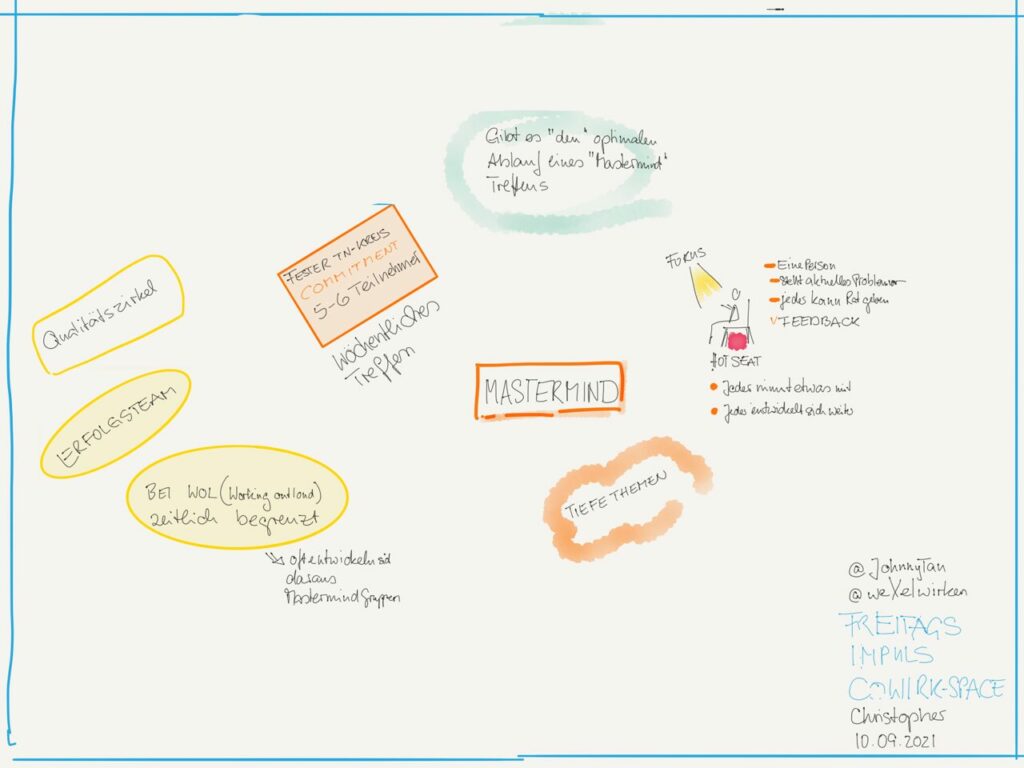 Gibt es "den" optimalen
Ablauf eines "Mastermind"
Treffens
FESTER TN-KREIS
COMMITMENT
5-6 Teilnehmer
Wöchentliches
Treffen
Qualitätszirkel
ERFOLGSTEAM
BEI WOL (Working out loud)
zeitlich begrenzt
oft entwickeln sich
daraus
Mastermind Gruppen
MASTERMIND
FOKUS
Eine Person
stellt aktuelles Problem vor
jedes kann Rat geben
FEEDBACK
HOT SEAT
Jeder nimmt etwas mit
Jeder entwickelt sich weiter
TIEFE THEMEN
@JohnnyTan
@weXelwirken
FREITAGS
IMPULS
COWIRK-SPACE
Christopher
10.09.2021